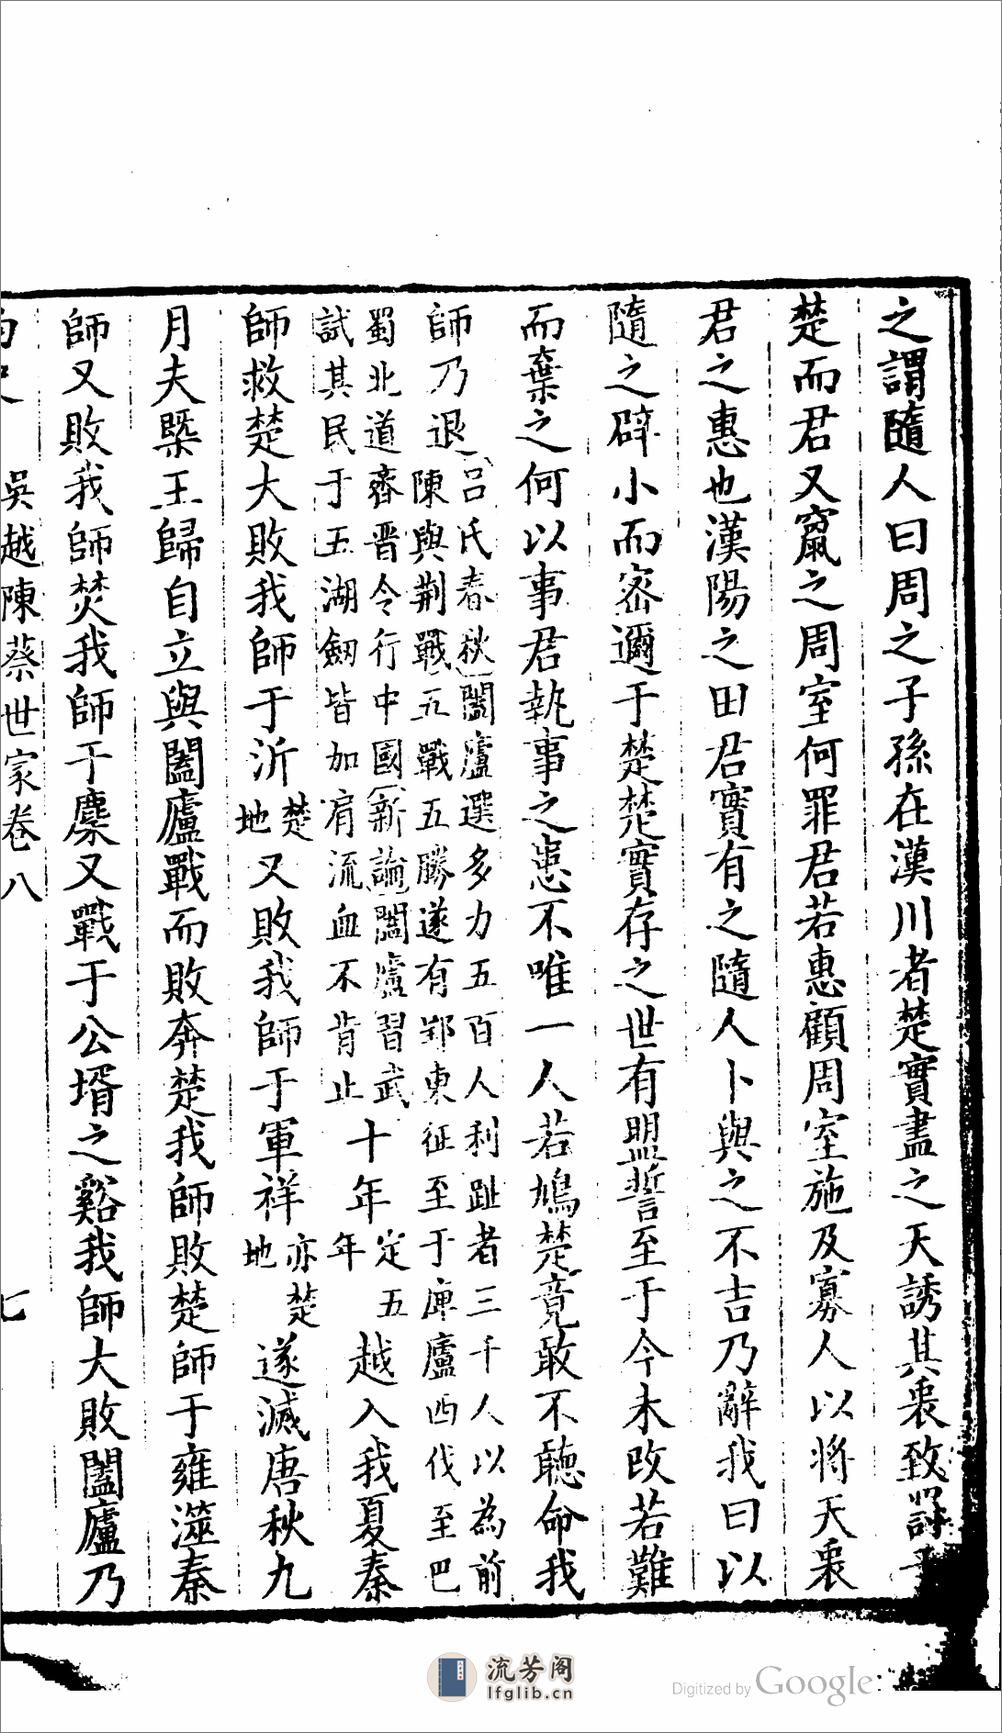 之謂隨人曰周之子孫在漢川者楚實盡之天誘其衷致罰于
楚而君又竄之周室何罪君若惠顧周室施及寡人以將天衷
君之惠也漢陽之田君實有之隨人卜與之不吉乃辭我曰以
隨之辟小而宻邇于楚楚實存之世有盟誓至于今未改若難
而棄之何以事君執事之患不唯一人若鳩楚竟敢不聽命我
師乃退
吕氏春秋闔廬選多力五百人利趾者三千人以為前
陳與荆戰五戰五勝遂有郢東征至于庳廬西伐至巴
蜀北道齊晋令行中國新論闔廬習武
試其民于五湖劒皆加肩流血不肯止
十年
定五
年
越入我夏秦
師救楚大敗我師于沂
楚
地
又敗我師于軍祥
亦楚
地
遂滅唐秋九
月夫槩王歸自立與闔廬戰而敗奔楚我師敗楚師于雍澨秦
師又敗我師焚我師于麇又戰于公壻之谿我師大敗闔廬乃
吳越陳蔡世家卷八
七
流芳阁
lfglib.cn
Digitized by Google